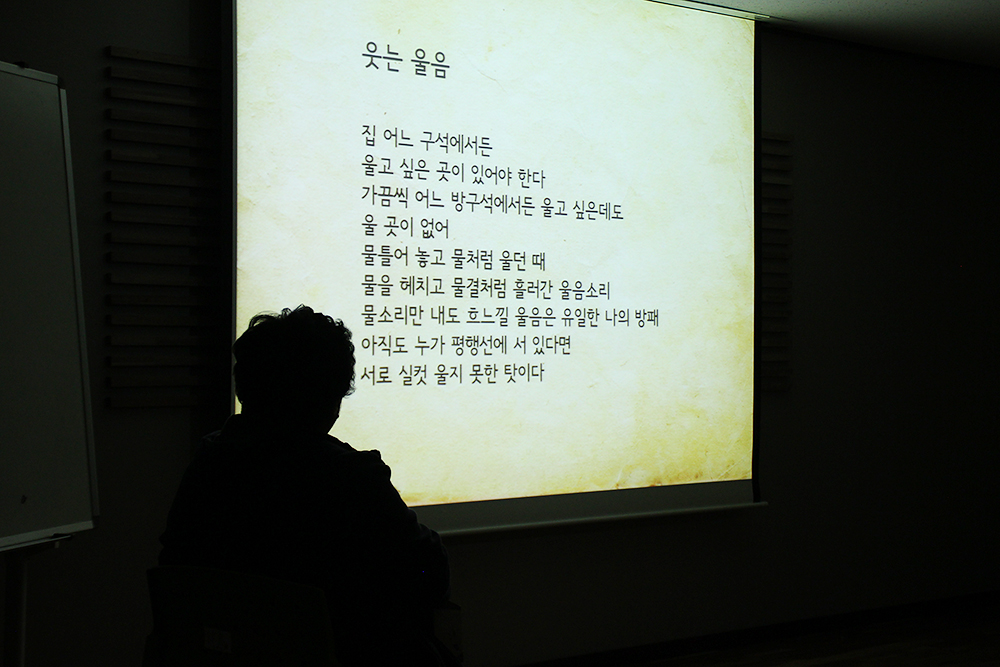 웃는 울음
집 어느 구석에서든
울고 싶은 곳이 있어야 한다
가끔씩 어느 방구석에서든 울고 싶은데도
울 곳이 없어
물틀어 놓고 물처럼 울던 때
물을 헤치고 물결처럼 흘러간 울음소리
물소리만 내도 흐느낄 울음은 유일한 나의 방패
아직도 누가 평행선에 서 있다면
서로 실컷 울지 못한 탓이다